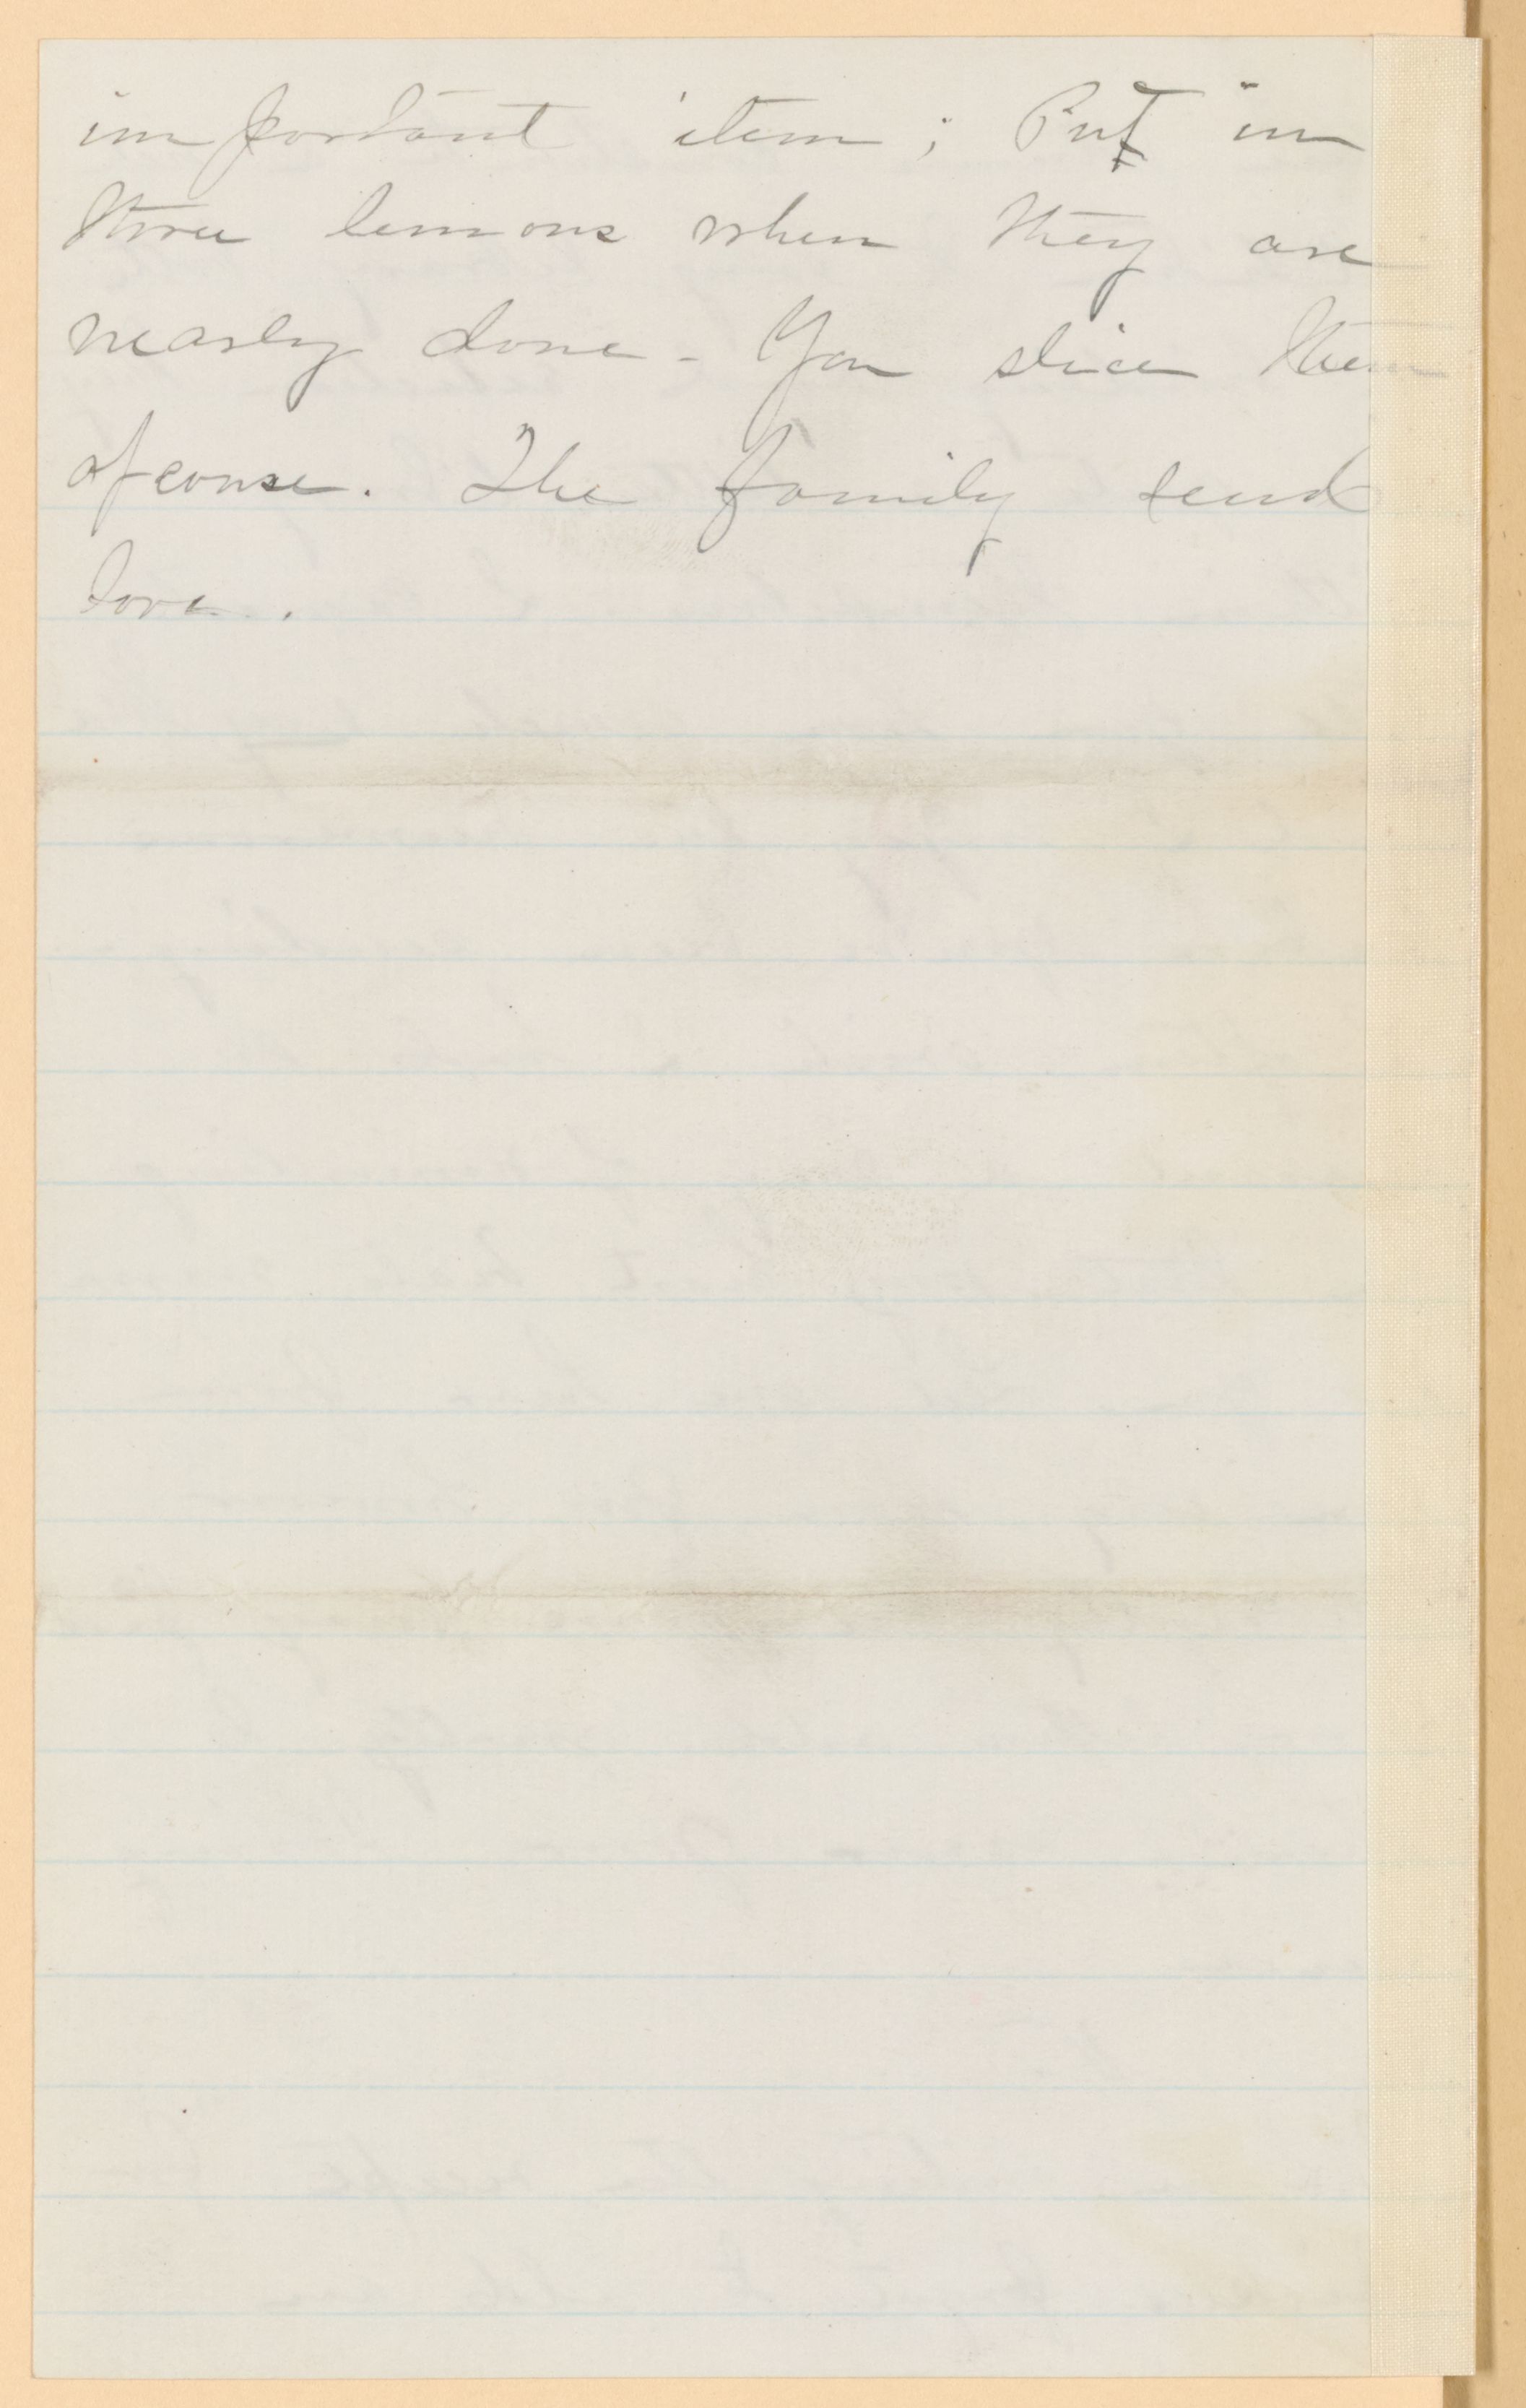 important item; Put in
three lemons when they are
nearly done - You slice them
of course. The family send
love.